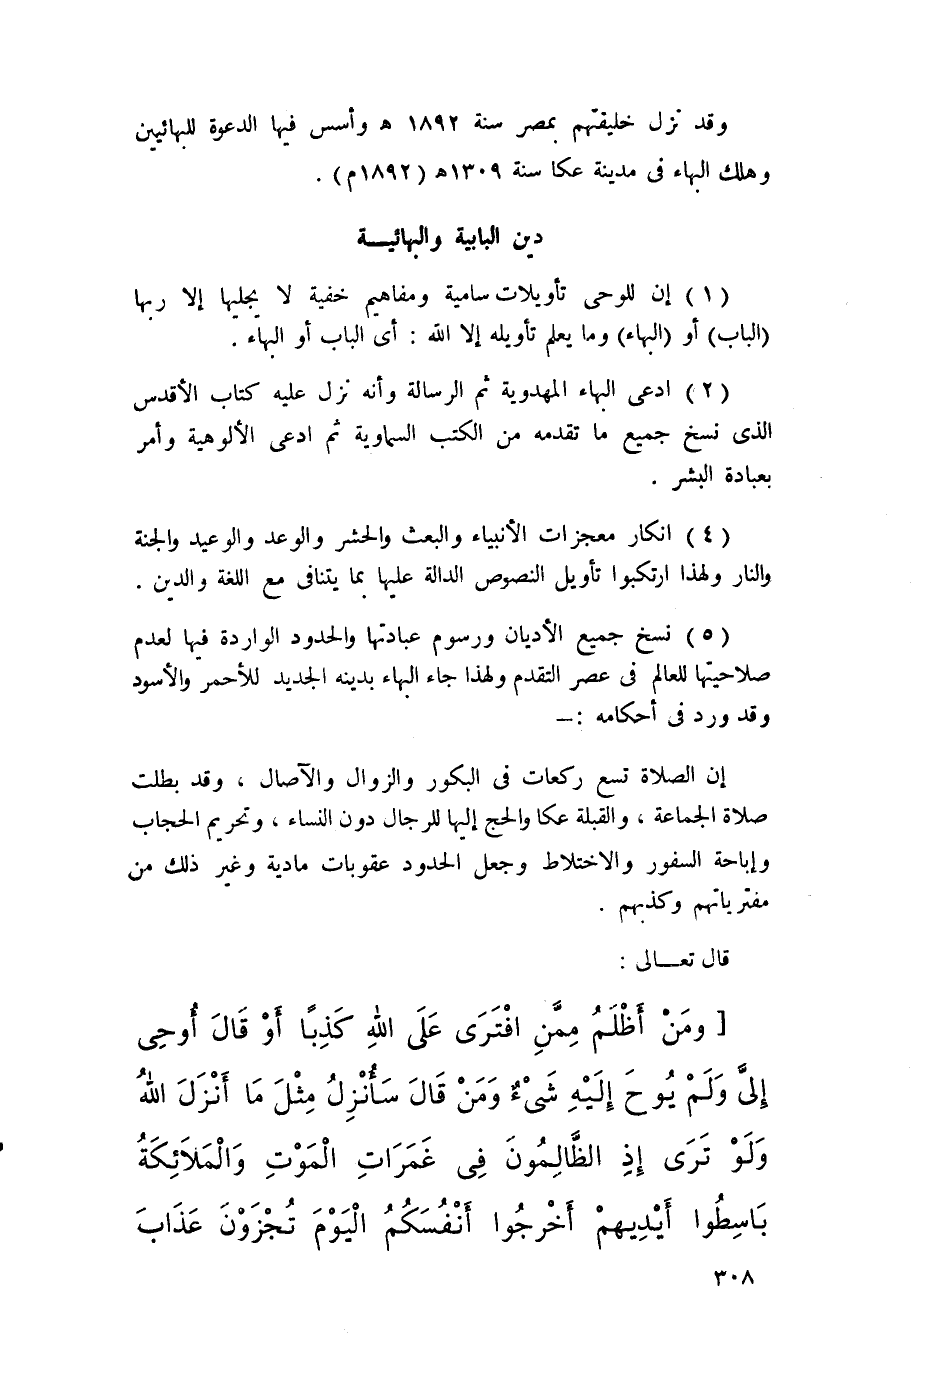 وقد نزل خليفتهم بمصر سنة ١٨٩٢ ه وأسس فيها الدعوة للبهائيين
وهلك البهاء فى مدينة عكا سنة ١٣٠٩ه (١٨٩٢م) .
دين البابية والبهائيــة
(١) إن للوحى تأويلات سامية ومفاهيم خفية لا يجليها إلا ربها
(الباب) أو (البهاء) وما يعلم تأويله إلا الله : أى الباب أو البهاء .
(٢) ادعى البهاء المهدوية ثم الرسالة وأنه نزل عليه كتاب الأقدس
الذى نسخ جميع ما تقدمه من الكتب السماوية ثم ادعى الألوهية وأمر
بعبادة البشر .
(٤) انكار معجزات الأنبياء والبعث والحشر والوعد والوعيد والجنة
والنار ولهذا ارتكبوا تأويل النصوص الدالة عليها بما يتنافى مع اللغة والدين .
(٥) نسخ جميع الأديان ورسوم عبادتها والحدود الواردة فيها لعدم
صلاحيتها للعالم فى عصر التقدم ولهذا جاء البهاء بدينه الجديد للأحمر والأسود
وقد ورد فى أحكامه :—
إن الصلاة تسع ركعات فى البكور والزوال والآصال ، وقد بطلت
صلاة الجماعة ، والقبلة عكا والحج إليها للرجال دون النساء ، وتحريم الحجاب
وإباحة السفور والاختلاط وجعل الحدود عقوبات مادية وغير ذلك من
مفترياتهم وكذبهم .
قال تعـــالى :
[ ومَنْ أَظْلَمُ مِمَّنِ افْتَرَى عَلَى اللهِ كَذِبًا أَوْ قَالَ أُوحِى
إِلىَّ وَلَمْ يُوحَ إِلَيْهِ شَىْءٌ وَمَنْ قَالَ سَأُنْزِلُ مِثْلَ مَا أَنْزَلَ اللهُ
وَلَوْ تَرَى إِذِ الظَّالِمُونَ فِى غَمَرَاتِ الْمَوْتِ وَالْمَلاَئِكَةُ
بَاسِطُوا أَيْدِيهمْ أَخْرِجُوا أَنْفُسَكُمُ الْيَوْمَ تُجْزَوْنَ عَذَابَ
٣٠٨